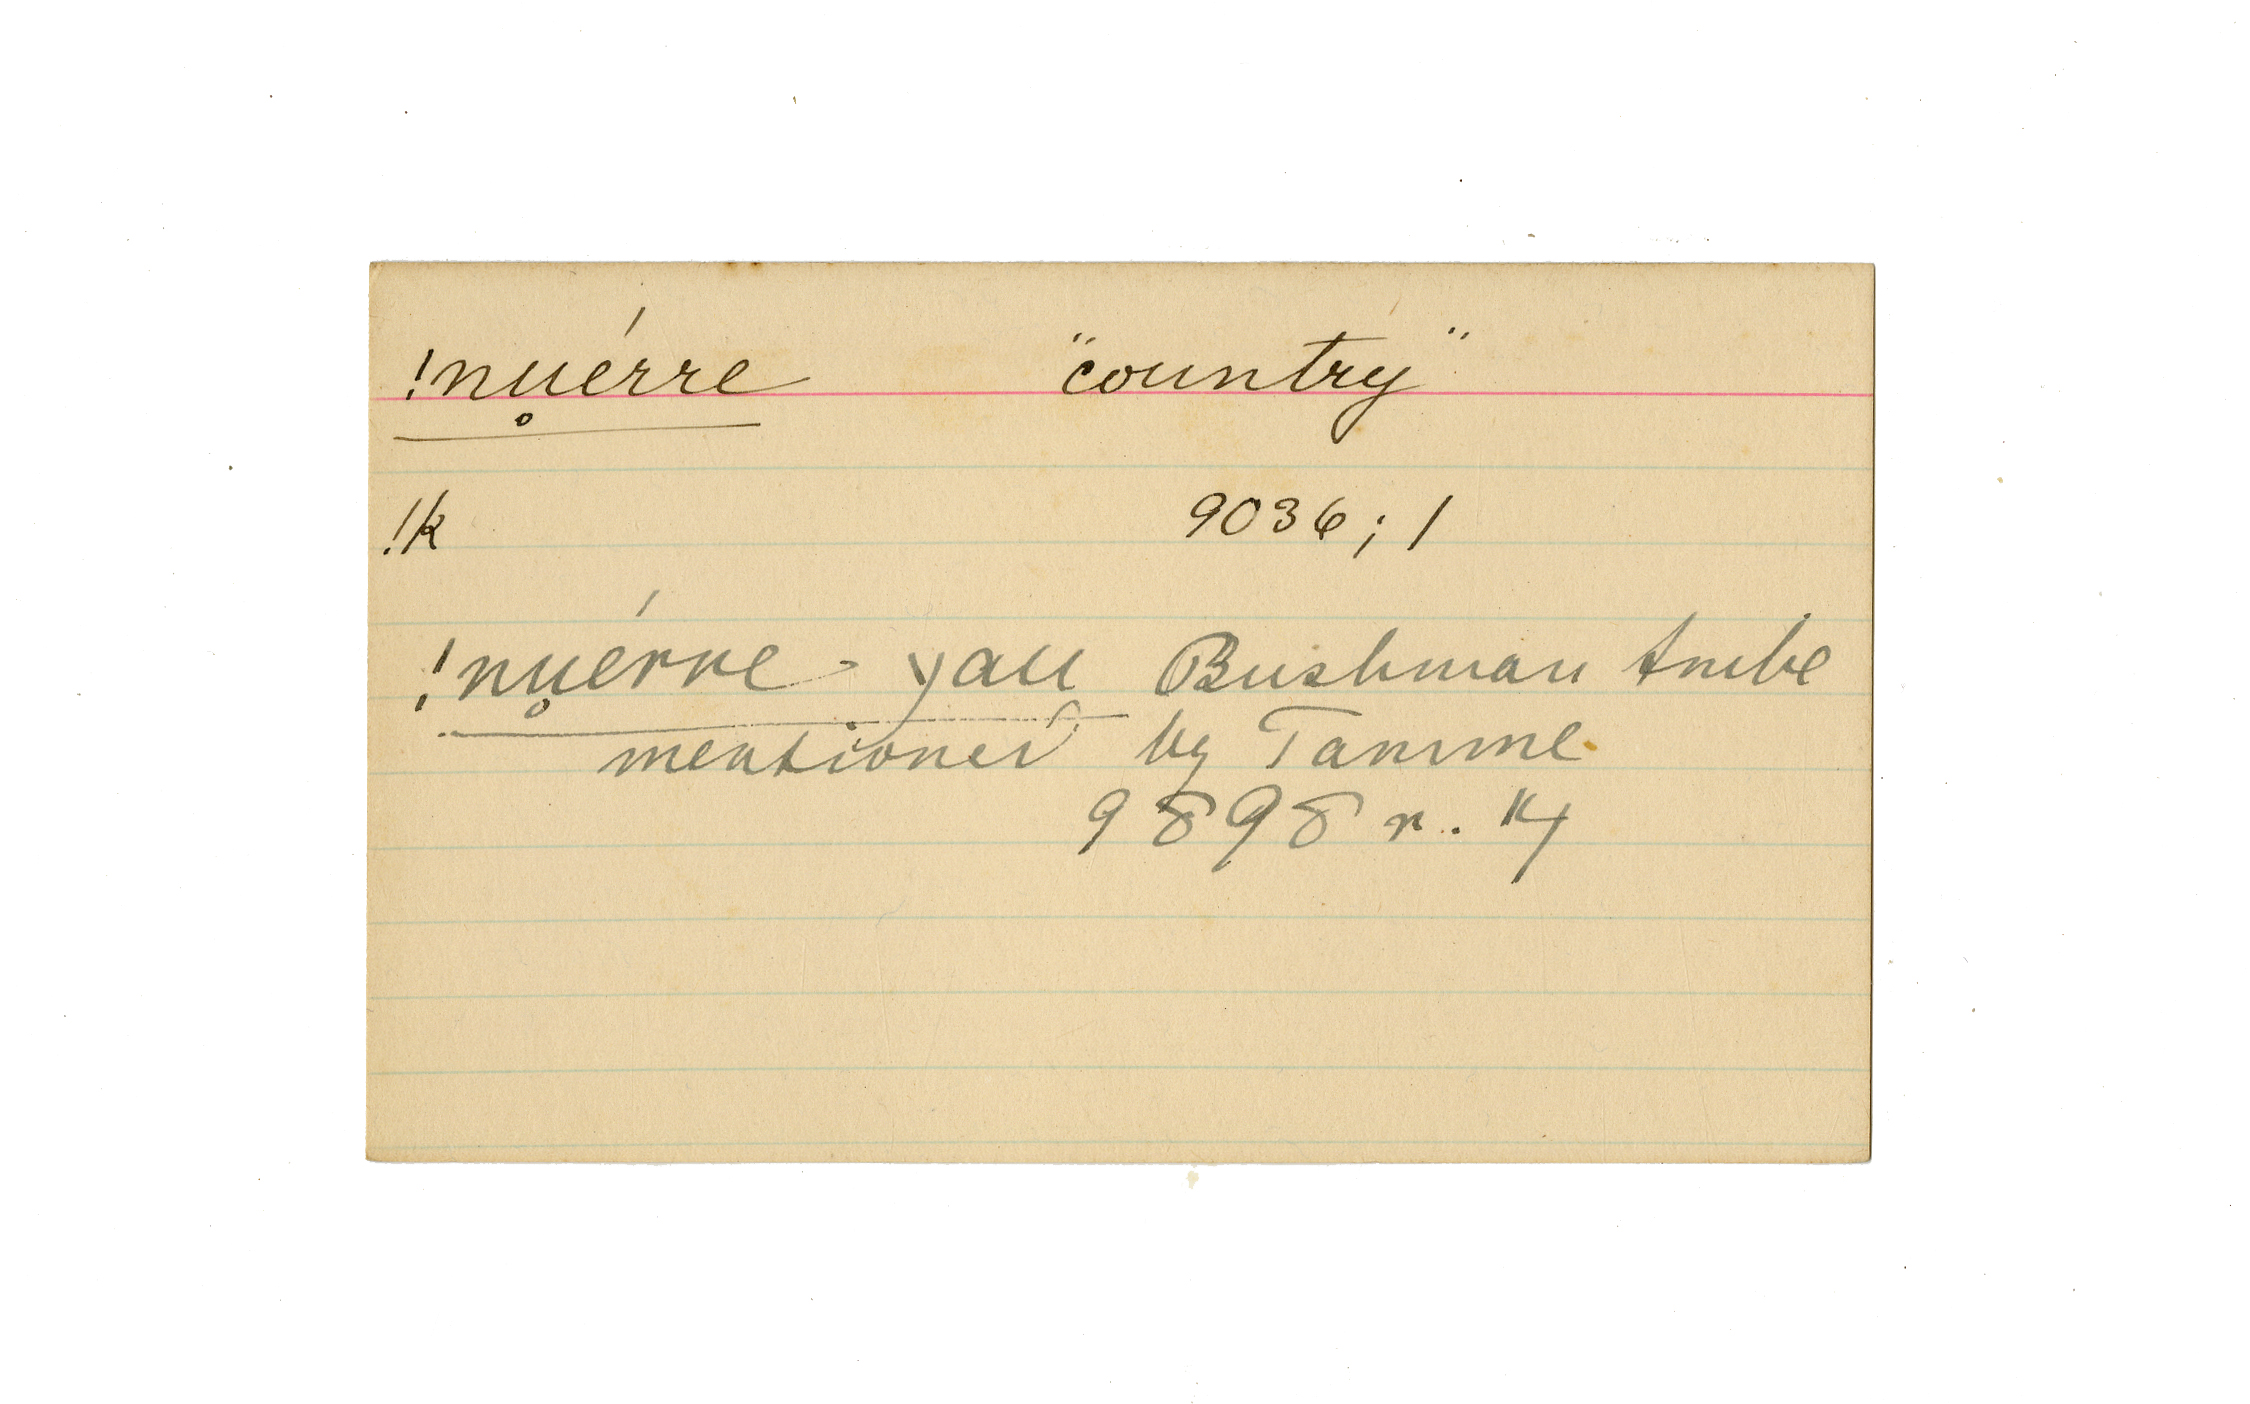 !nu̥érre "country"
!k 9036; 1
!nu̥érre-yau Bushman tribe
mentioned by Tamme
9898 r. 14